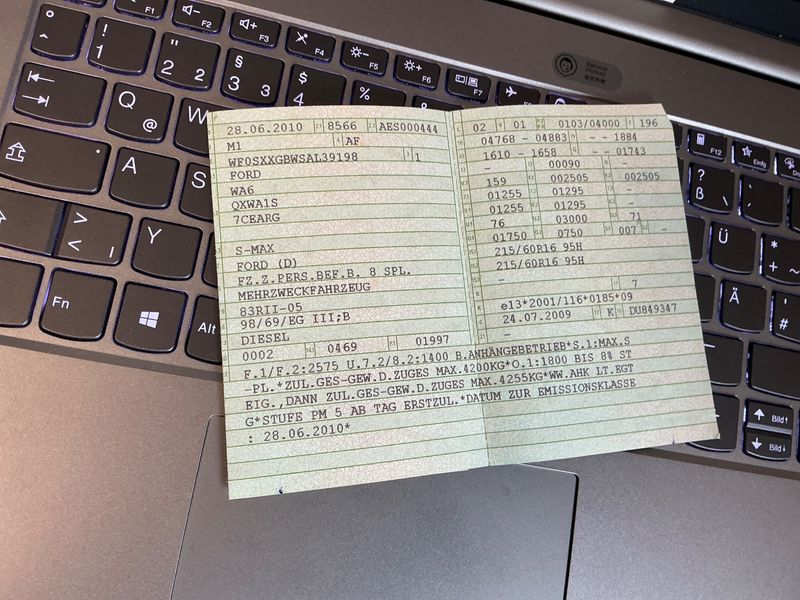 28.06.2010 8566 AES000444
M1 AF
WF0SXXGBWSAL39198 1
FORD
WA6
QXWA1S
7CEARG
S-MAX
FORD (D)
FZ.Z.PERS.BEF.B. 8 SPL.
MEHRZWECKFAHRZEUG
83RII-05
98/69/EG III;B
DIESEL
0002 0469 01997
02 01 0103/04000 196
04768 - 04883 - - 1884
1610 - 1658 - - 01743
- 00090 -
159 002505 002505
01255 01295 -
01255 01295 -
76 03000 71
01750 0750 007 -
215/60R16 95H
215/60R16 95H
-
- 7
e13*2001/116*0185*09
24.07.2009 K DU849347
-
F.1/F.2:2575 U.7.2/8.2:1400 B.ANHÄNGEBETRIEB*S.1:MAX.S
-PL.*ZUL.GES-GEW.D.ZUGES MAX.4200KG*O.1:1800 BIS 8% ST
EIG.,DANN ZUL.GES-GEW.D.ZUGES MAX.4255KG*WW.AHK LT.EGT
G*STUFE PM 5 AB TAG ERSTZUL.*DATUM ZUR EMISSIONSKLASSE
: 28.06.2010*
F1 F2 F3 F4 F5 F6 F7 F12 Einfg
Service Hotkey
° ^ ! 1 " 2 2 § 3 3 $ 4 % ? ß \
Q @ W Ü * + ~
A S Ö Ä ' #
> < | Y
Fn Alt Bild↑ Bild↓